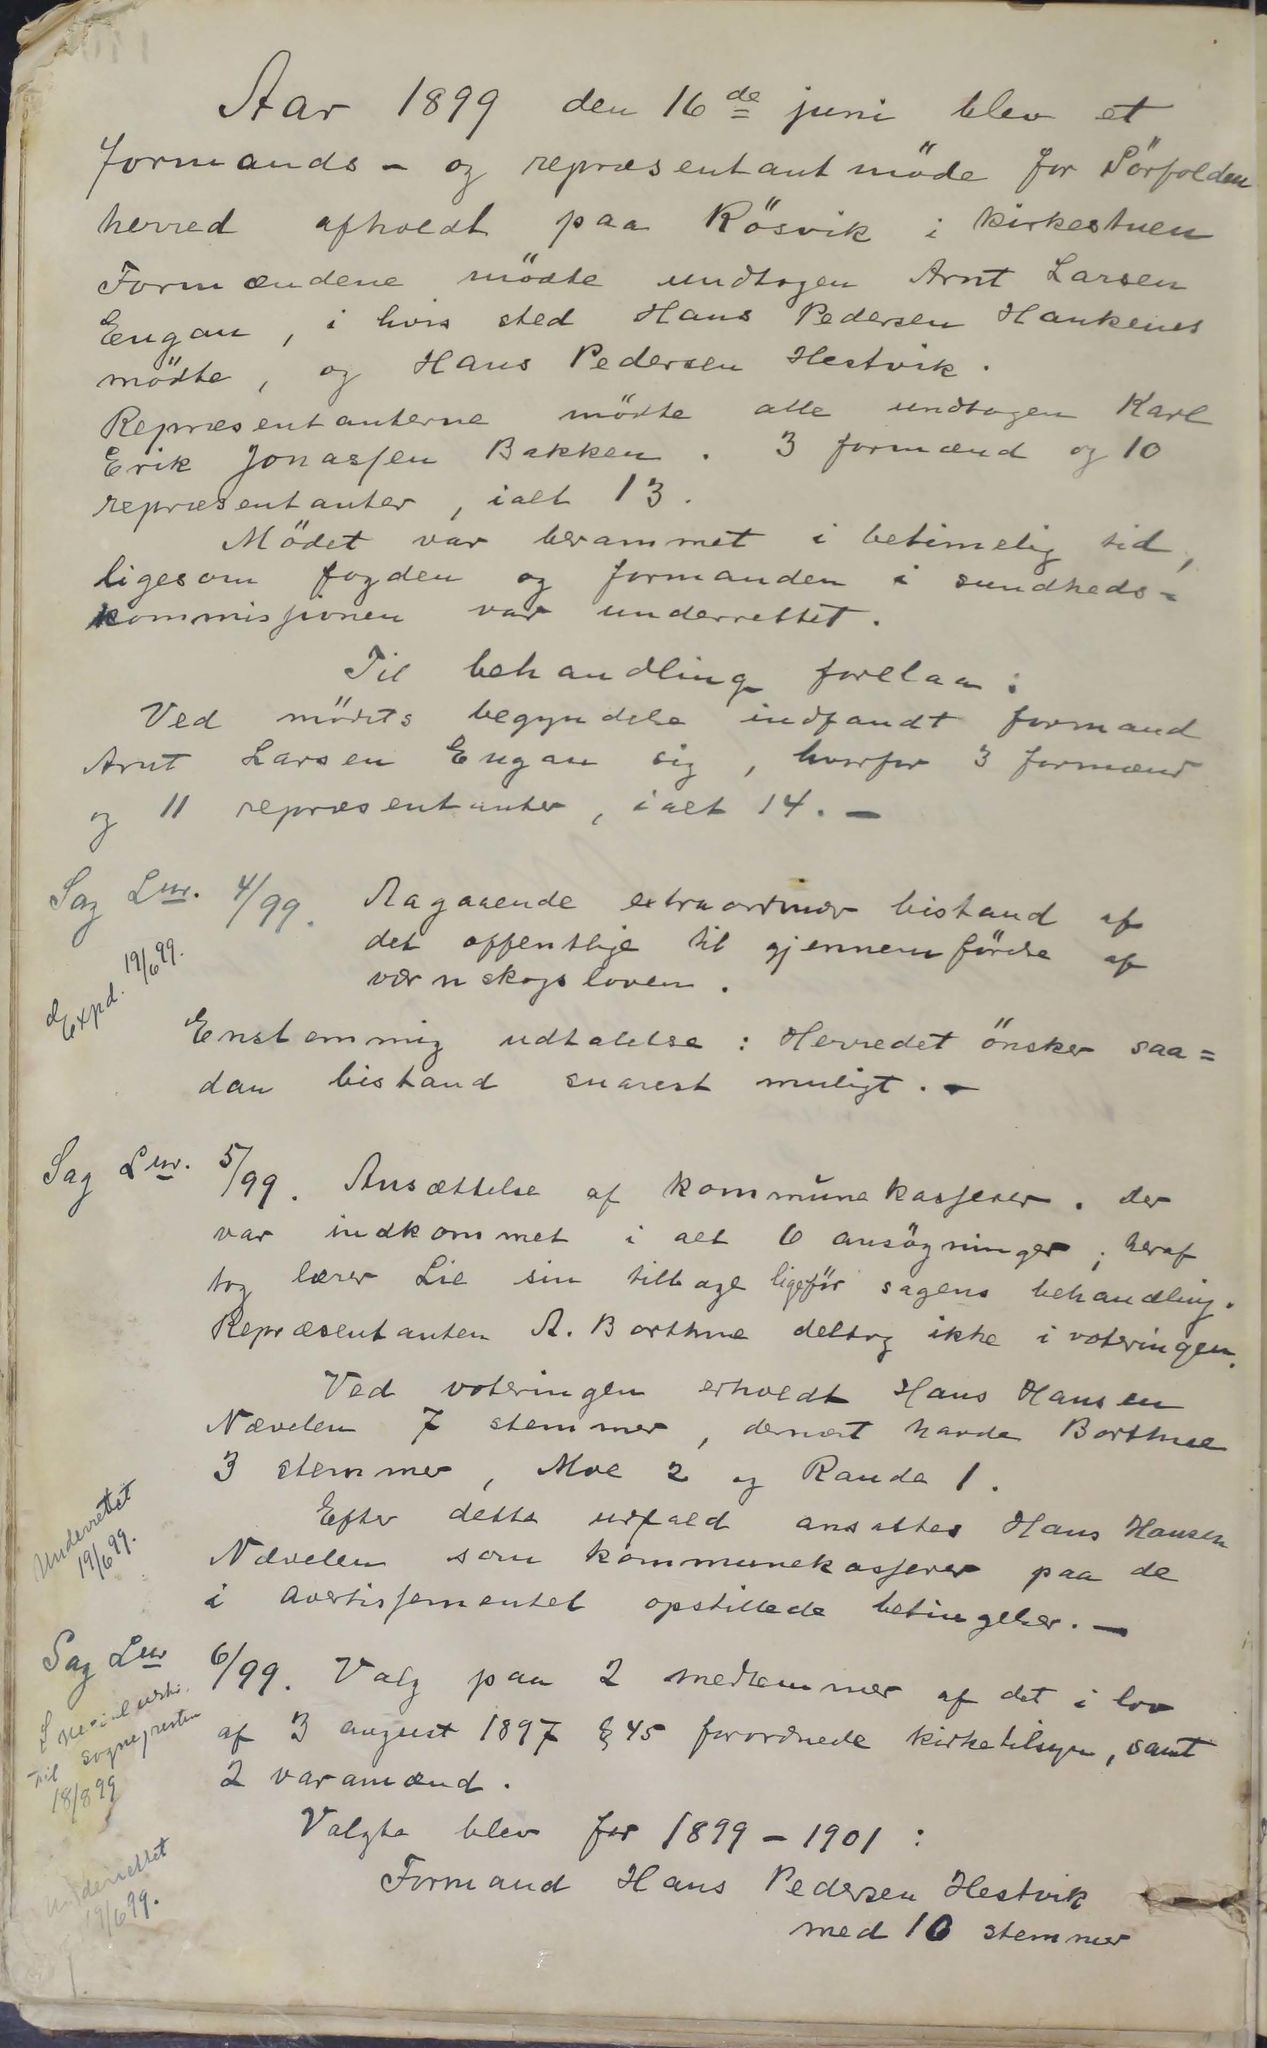 Aar 1899 den 16de juni blev et
formands- og repræsentantmöde for Sörfolden
herred afholdt paa Rösvik i kirkestuen
Formændene mödte undtagen Arnt Larsen
Engan, i hvis sted Hans Pedersen Hankenes
mödte, og Hans Pedersen Hestvik.
Repræsentanterne mödte alle undtagen Karl
Erik Jonassen Bakken. 3 formænd og 10
repræsentanter, ialt 13.
Mödet var berammet i betimelig tid,
ligesom fogden og formanden i sundheds-
kommissionen var underrettet.
Til behandling forelaa:
Ved mödets begyndelse indfandt formand
Arnt Larsen Engan sig, hvorfor 3 formænd
og 11 repræsentanter, ialt 14. —
Sag Lnr. 4/99. Aagaaende extraordinær bistand af
det offentlige til gjennemförelse af
værnskogsloven.
Expd. 19/6 99.
Enstemmig udtalelse: Herredet önsker saa=
dan bistand snarest muligt. —
Sag Lnr. 5/99. Ansættelse af kommunekasserer. Der
var indkommet i alt 6 ansögninger; heraf
tog lærer Lie sin tilbage ligeför sagens behandling.
Repræsentanten A. Borthne deltog ikke i voteringen.
Ved voteringen erholdt Hans Hansen
Nævelen 7 stemmer, dernæst havde Borthne
3 stemmer, Moe 2 og Randa 1.
Efter dette udfald ansattes Hans Hansen
Nævelen som kommunekasserer paa de
i avertissementet opstillede betingelser. —
Underrettet
19/6 99.
Sag Lnr 6/99. Valg paa 2 medlemmer af det i lov
af 3 august 1897 § 45 forordnede kirketilsyn, samt
2 varamænd.
til sognepresten
18/8 99
Valgte blev for 1899 - 1901:
Formand Hans Pedersen Hestvik
med 10 stemmer
Underrettet
19/6 99.